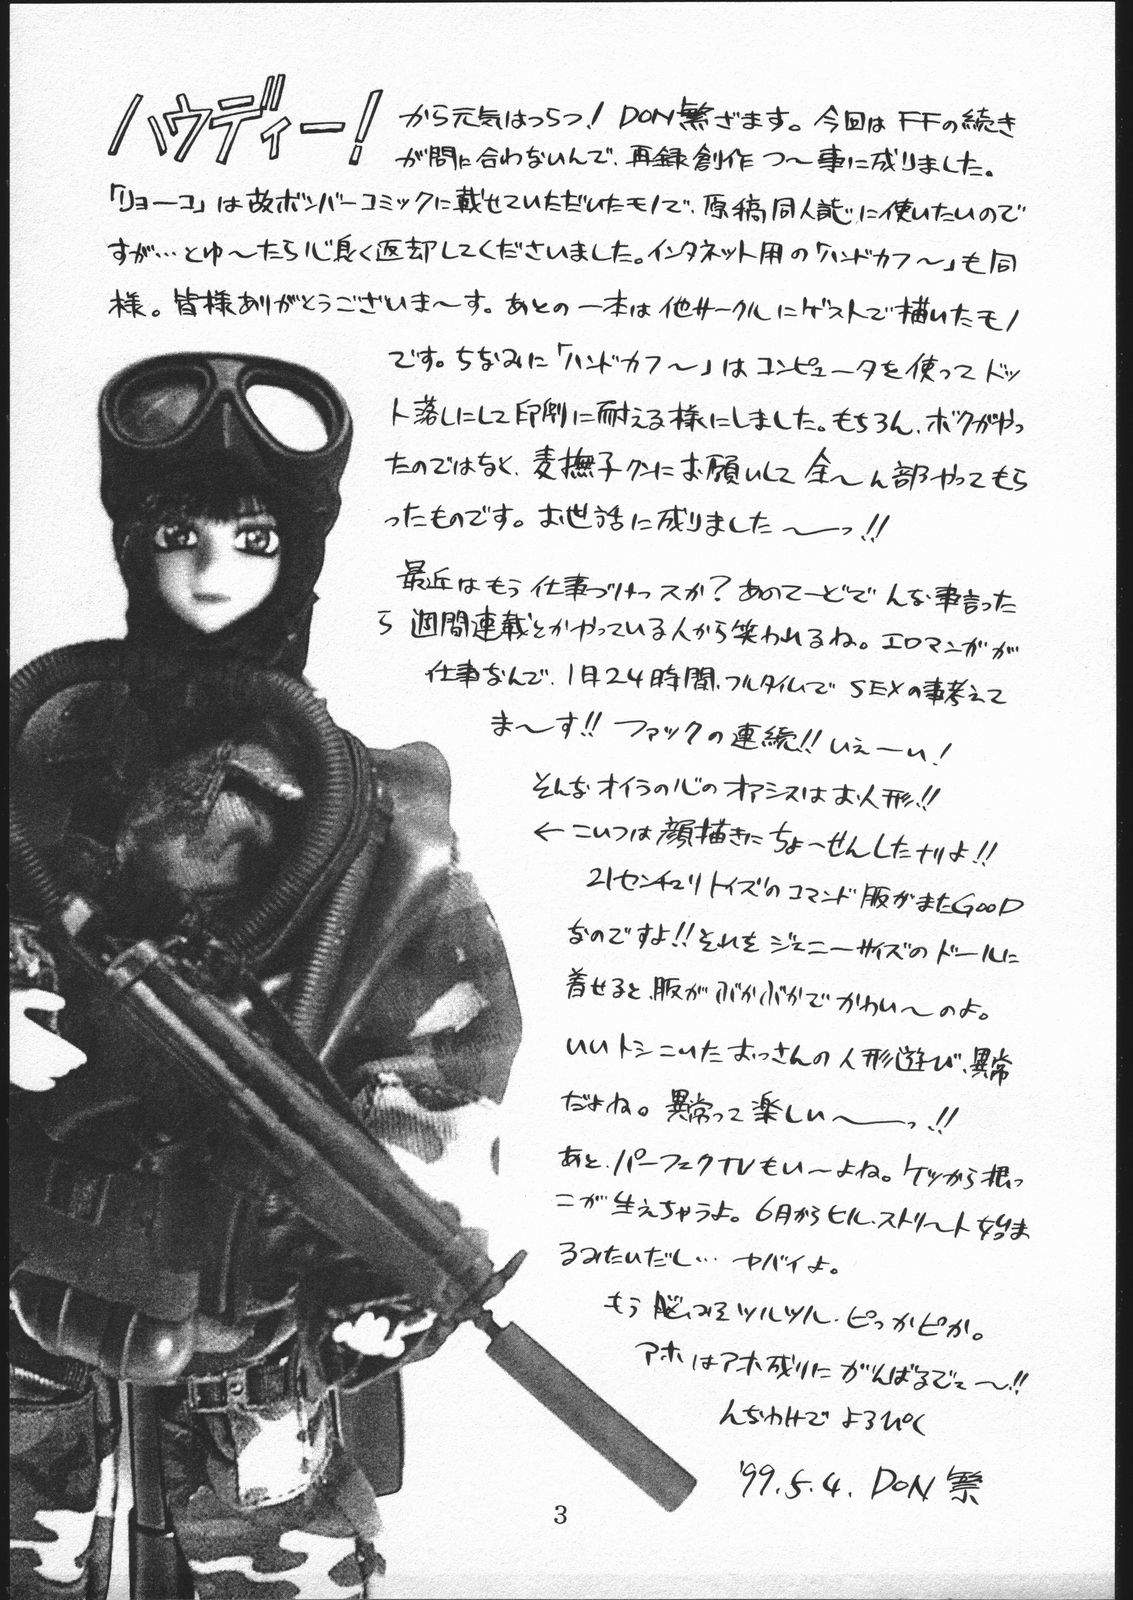 ハウディー!
から元気はっらつ! DON繁ざます。今回はFFの続き
が間に合わないんで、再録創作つ〜事に成りました。
「リョーコ」は故ボンバーコミックに載せていただいたモノで、原稿同人誌に使いたいので
すが…とゆ〜たら心良く返却してくださいました。インタネット用の「ハンドカフ〜」も同
様。皆様ありがとうございま〜す。あとの一本は他サークルにゲストで描いたモノ
です。ちなみに「ハンドカフ〜」はコンピュータを使ってドッ
ト落しにして印刷に耐える様にしました。もちろん、ボクがやっ
たのではなく、麦撫子クンにお願いして全〜ん部やってもら
ったものです。お世話に成りました〜っ!!
最近はもう仕事づけっスか?あのてーどでんな事言った
ら週間連載とかやっている人から笑われるね。エロマンガが
仕事なんで、1日24時間、フルタイムでSEXの事考えて
ま〜す!! ファックの連続!! いえーい!
そんなオイラの心のオアシスはお人形!!
←こいつは顔描きにちょーせんしたナリよ!!
21センチュリトイズのコマンド服がまたGOOD
なのですよ!! それをジェニーサイズのドールに
着せると、服がぶかぶかでかわい〜のよ。
いいトシこいたおっさんの人形遊び、異常
だよね。異常って楽しい〜っ!!
あと、パーフェクTVもい〜よね。ケツから根っ
こが生えちゃうよ。6月からヒル・ストリート始ま
るみたいだし… ヤバイよ。
もう脳みそツルツル・ピッカピカ。
アホはアホ成りにがんばるでェ〜!!
んぢわけでよろぴく
'99.5.4. DON繁
3